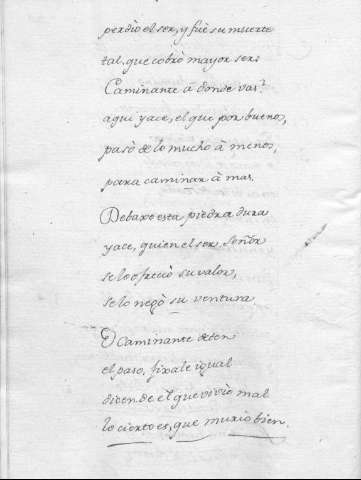 perdiò el ser, y fuè su muerte
tal, que cobrò mayor ser.
Caminante â donde vas?
aqui yace, el que por bueno,
pasò de lo mucho â menos,
para caminar â mas.
Debaxo esta piedra dura
yace, quien el ser Señor
se lo ofreciò su valor,
se lo negò su ventura
O Caminante deten
el paso, fixale igual
dicen de el que viviò mal
lo cierto es, que muriò bien.